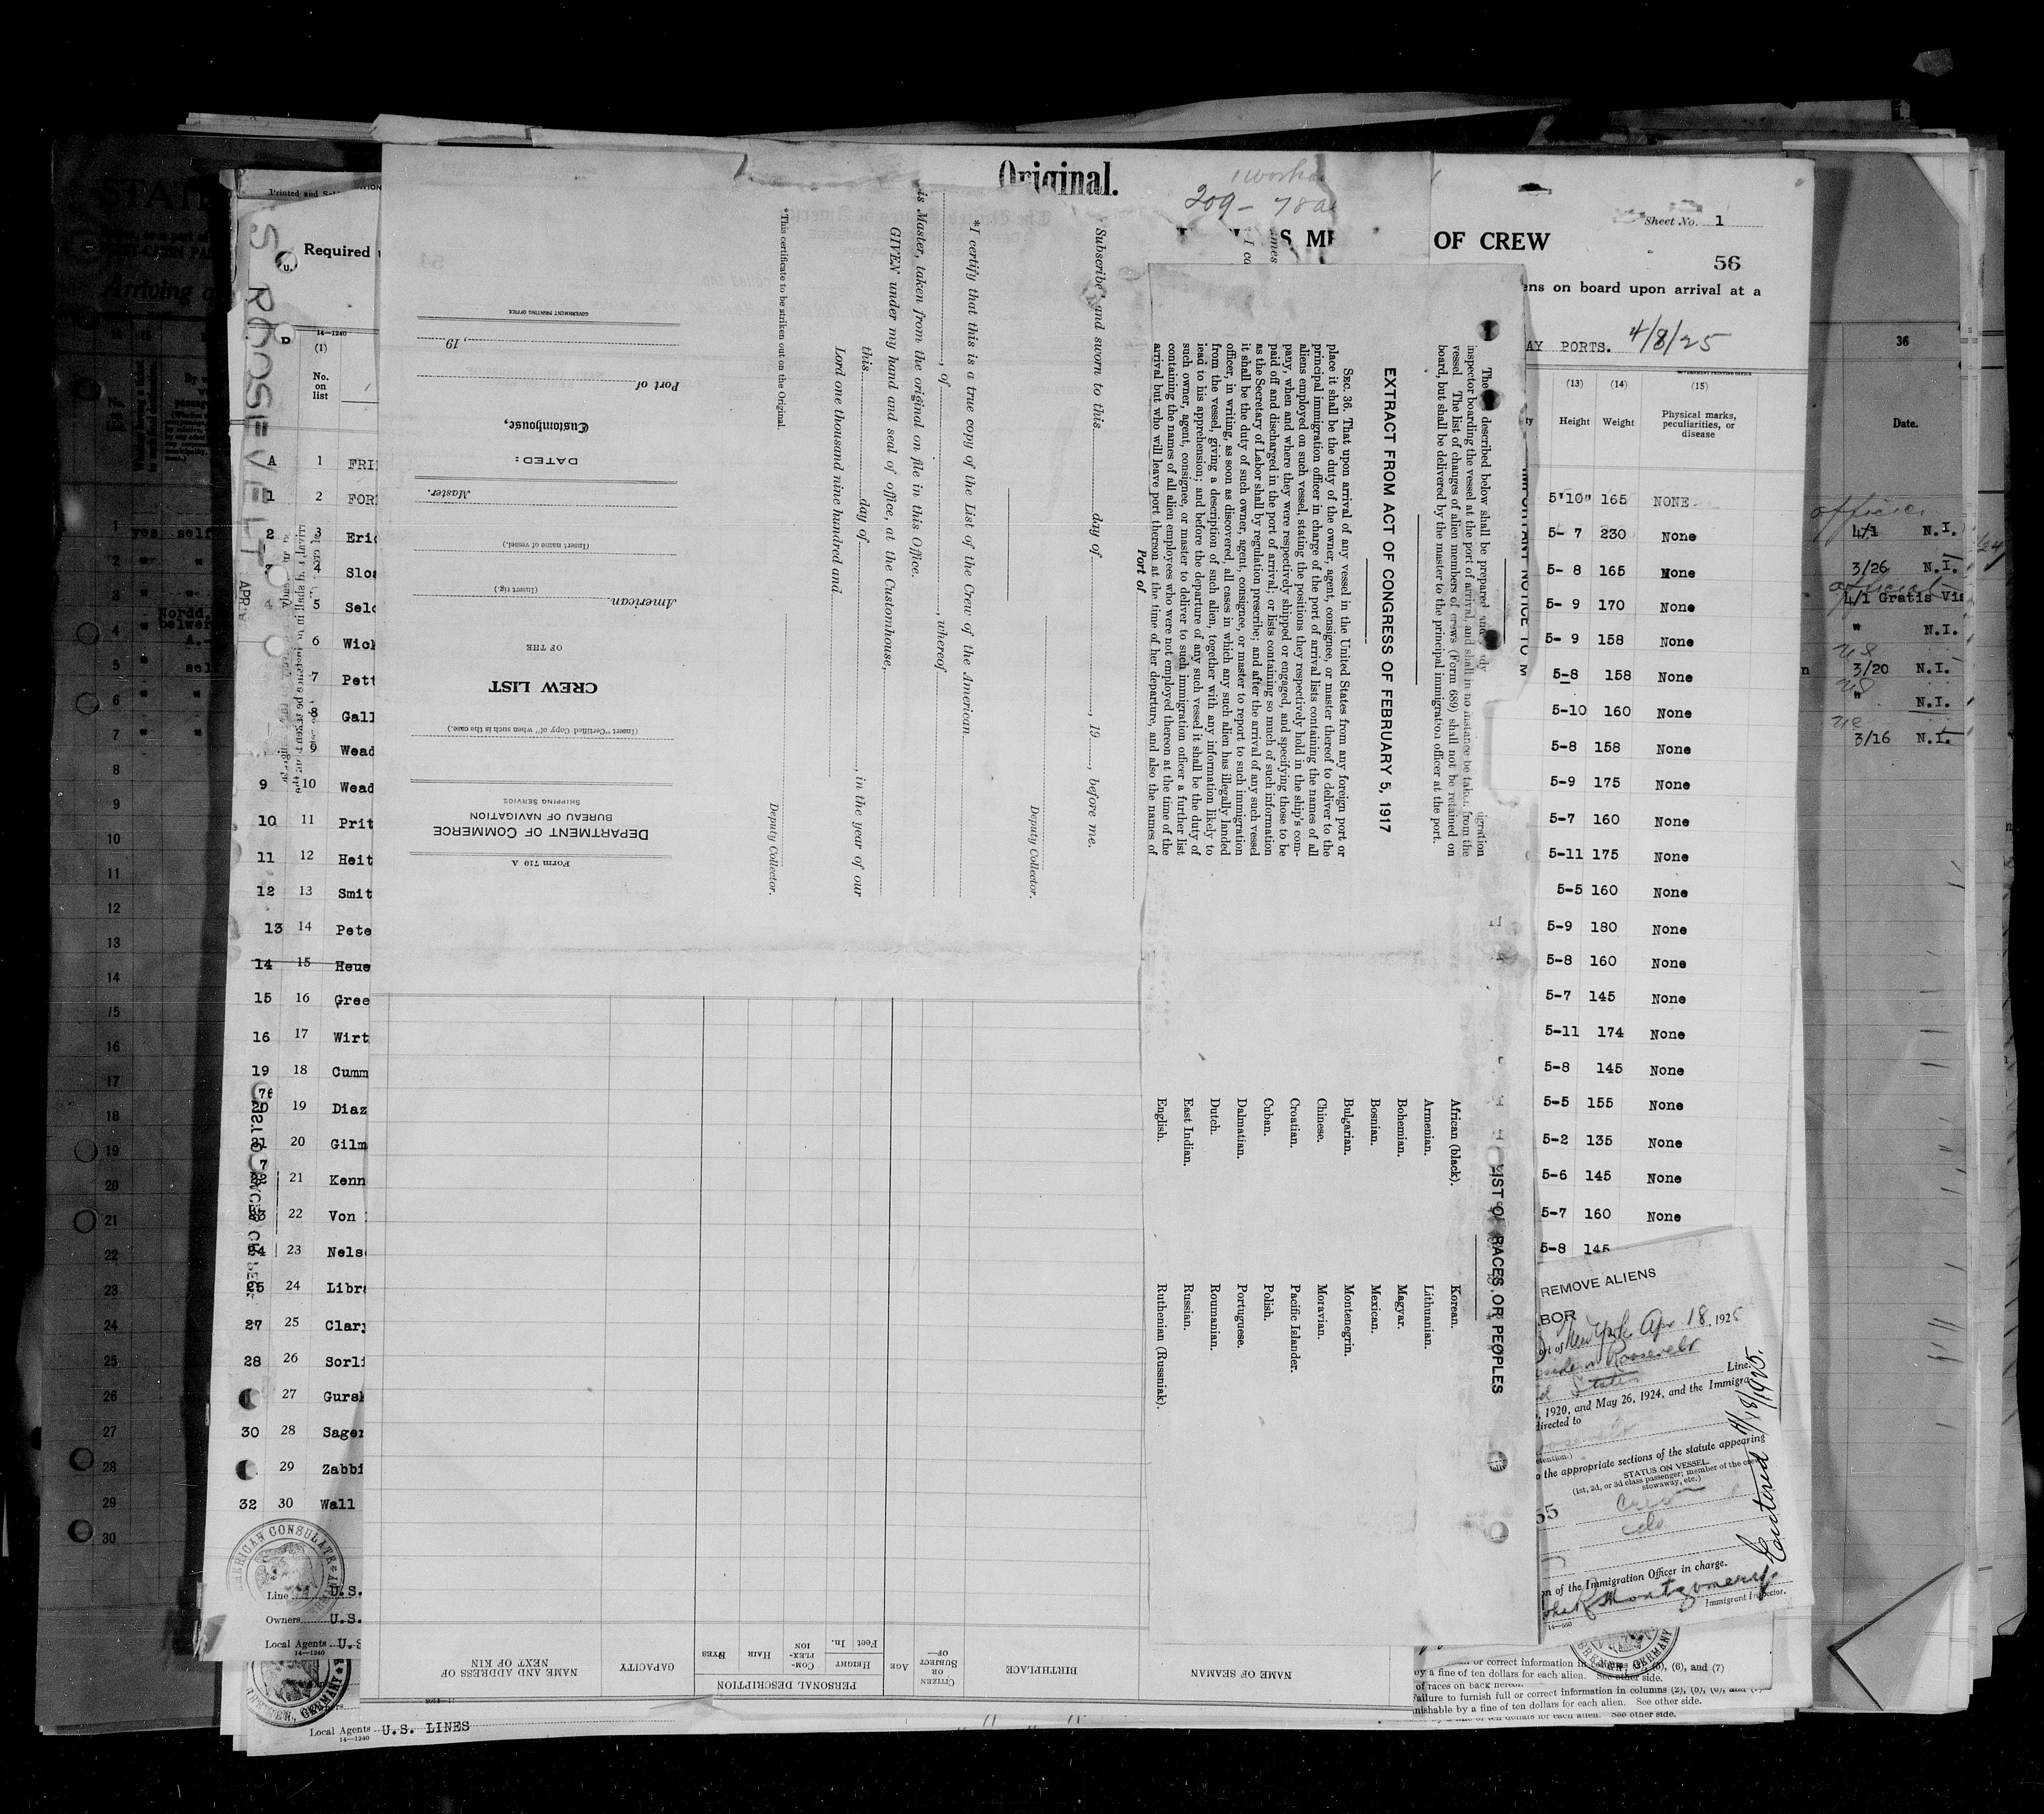 Original.
209 - 78
OF CREW
Sheet No. 1
56
ens on board upon arrival at a
AY PORTS. 4/8/25
Printed and
Required
14—1240
(1)
No.
on
list
S ROOSEVELT
A 1 FRI
1 2 FOR
2 3 Eric
4 Sloa
5 Seld
6 Wick
7 Pett
8 Gall
9 Wead
9 10 Wead
10 11 Prit
11 12 Heit
12 13 Smit
13 14 Pete
14 15 Heue
15 16 Gree
16 17 Wirt
19 18 Cumm
20 19 Diaz
21 20 Gilm
21 Kenn
23 22 Von
24 23 Nels
25 24 Libr
27 25 Clar
28 26 Sorli
27 Gurs
30 28 Sage
29 Zabbi
32 30 Wall
AMERICAN CONSULATE
Line U.S.
Owners U.S.
Local Agents U.S
14—1240
Local Agents U.S. LINES
14—1240
Form 710 A
DEPARTMENT OF COMMERCE
BUREAU OF NAVIGATION
SHIPPING SERVICE
(Insert "Certified Copy of" when such is the case.)
CREW LIST
OF THE
American
(Insert rig.)
(Insert name of vessel.)
Master.
DATED:
Customhouse,
Port of
, 19
GOVERNMENT PRINTING OFFICE
Port of
Subscribed and sworn to this day of , 19 , before me.
Deputy Collector.
*I certify that this is a true copy of the List of the Crew of the American
, of , whereof
is Master, taken from the original on file in this Office.
GIVEN under my hand and seal of office, at the Customhouse,
this day of , in the year of our
Lord one thousand nine hundred and
Deputy Collector.
*This certificate to be striken out on the Original.
NAME OF SEAMAN
BIRTHPLACE
CITIZEN
OR
SUBJECT
OF—
AGE
PERSONAL DESCRIPTION
HEIGHT
Feet In.
COM-
PLEX-
ION
HAIR
EYES
CAPACITY
NAME AND ADDRESS OF
NEXT OF KIN
The described below shall be prepared
inspector boarding the vessel at the port of arrival, and shall in no instance be taken from the
vessel. The list of changes of alien members of crews (Form 689) shall not be retained on
board, but shall be delivered by the master to the principal immigration officer at the port.
EXTRACT FROM ACT OF CONGRESS OF FEBRUARY 5, 1917
SEC. 36. That upon arrival of any vessel in the United States from any foreign port or
place it shall be the duty of the owner, agent, consignee, or master thereof to deliver to the
principal immigration officer in charge of the port of arrival lists containing the names of all
aliens employed on such vessel, stating the positions they respectively hold in the ship's com-
pany, when and where they were respectively shipped or engaged, and specifying those to be
paid off and discharged in the port of arrival; or lists containing so much of such information
as the Secretary of Labor shall by regulation prescribe; and after the arrival of any such vessel
it shall be the duty of such owner, agent, consignee, or master to report to such immigration
officer, in writing, as soon as discovered, all cases in which any such alien has illegally landed
from the vessel, giving a description of such alien, together with any information likely to
lead to his apprehension; and before the departure of any such vessel it shall be the duty of
such owner, agent, consignee, or master to deliver to such immigration officer a further list
containing the names of all alien employees who were not employed thereon at the time of the
arrival but who will leave port thereon at the time of her departure, and also the names of
LIST OF RACES OR PEOPLES
African (black).
Armenian.
Bohemian.
Bosnian.
Bulgarian.
Chinese.
Croatian.
Cuban.
Dalmatian.
Dutch.
East Indian.
English.
Korean.
Lithuanian.
Magyar.
Mexican.
Montenegrin.
Moravian.
Pacific Islander.
Polish.
Portuguese.
Roumanian.
Russian.
Ruthenian (Russniak).
(13) (14) (15)
Height Weight Physical marks,
peculiarities, or
disease
5'10" 165 NONE
5- 7 230 None
5- 8 165 None
5- 9 170 None
5- 9 158 None
5-8 158 None
5-10 160 None
5-8 158 None
5-9 175 None
5-7 160 None
5-11 175 None
5-5 160 None
5-9 180 None
5-8 160 None
5-7 145 None
5-11 174 None
5-8 145 None
5-5 155 None
5-2 135 None
5-6 145 None
5-7 160 None
5-8 145
REMOVE ALIENS
BOR
New York Apr 18, 1925
Roosevelt
Line.
States
, 1920, and May 26, 1924, and the Immigra
directed to
the appropriate sections of the statute appearing
STATUS ON VESSEL.
(1st, 2d, or 3d class passenger; member of the crew
stowaway, etc.)
Crew
do
of the Immigration Officer in charge.
Montgomery
Immigrant Inspector.
Entered 4/18/1925.
BREMEN, GERMANY
or correct information in (6), and (7)
by a fine of ten dollars for each alien. See other side.
of races on back hereof.
Failure to furnish full or correct information in columns (2), (5), (6), and (7)
nishable by a fine of ten dollars for each alien. See other side.
36
Date.
officer
4/1 N.I.
3/26 N.I.
4/1 Gratis Vis
" N.I.
3/20 N.I.
" N.I.
3/16 N.I.
STAT
Arriving
1 yes self
2 " "
3
4
5 " self
6 " "
7 " "
8
9
10
11
12
13
14
15
16
17
18
19
20
21
22
23
24
25
26
27
28
29
30